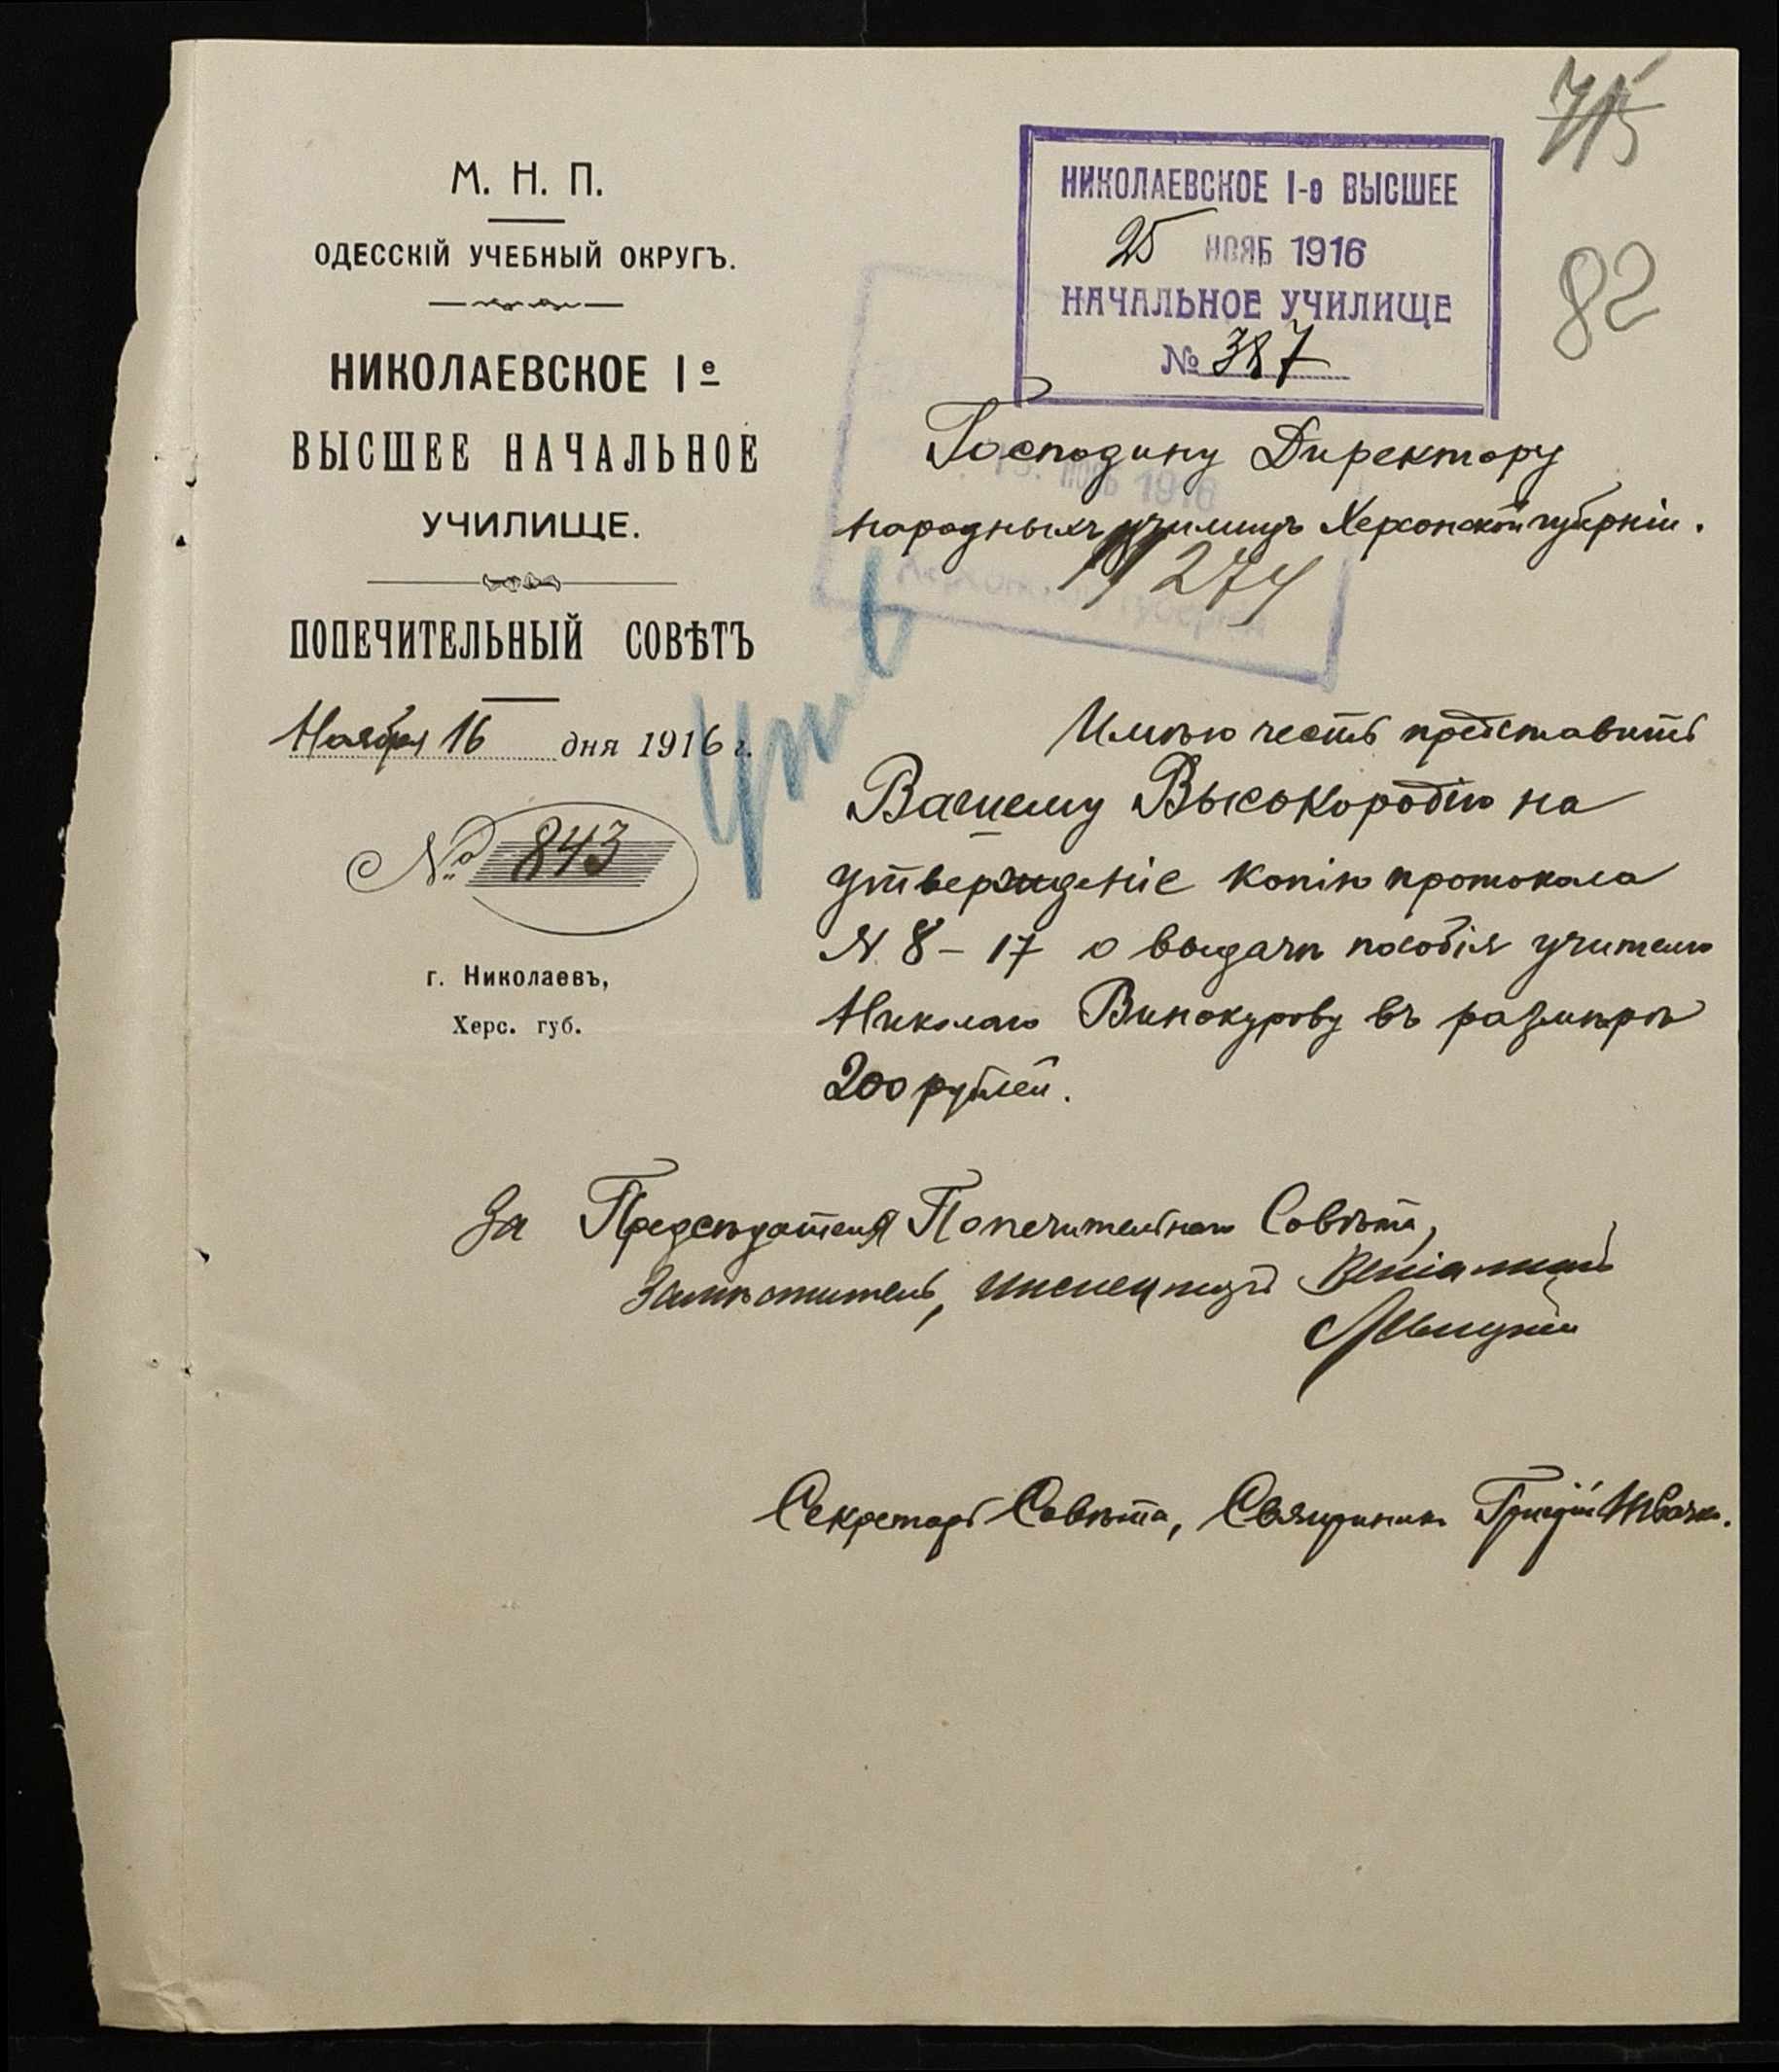 М. Н. П.
ОДЕССКІЙ УЧЕБНЫЙ ОКРУГЪ.
НИКОЛАЕВСКОЕ I е
ВЫСШЕЕ НАЧАЛЬНОЕ
УЧИЛИЩЕ.
ПОПЕЧИТЕЛЬНЫЙ СОВѢТЪ
Ноября 16 дня 1916 г.
№ 843
г. Николаевъ,
Херс. губ.
75
82
НИКОЛАЕВСКОЕ I-е ВЫСШЕЕ
25 НОЯБ 1916
НАЧАЛЬНОЕ УЧИЛИЩЕ
№ 387
Господину Директору
народныхъ училищъ Херсонской губерніи.
1916
губерніи
Имѣю честь представить
Вашему Высокородію на
утвержденіе копію протокола
N 8 – 17 о выдачѣ пособія учителю
Николаю Винокурову въ размѣрѣ
200 рублей.
За Предсѣдателя Попечительнаго Совѣта,
Замѣститель, Инспекторъ
Секретарь Совѣта, Священникъ